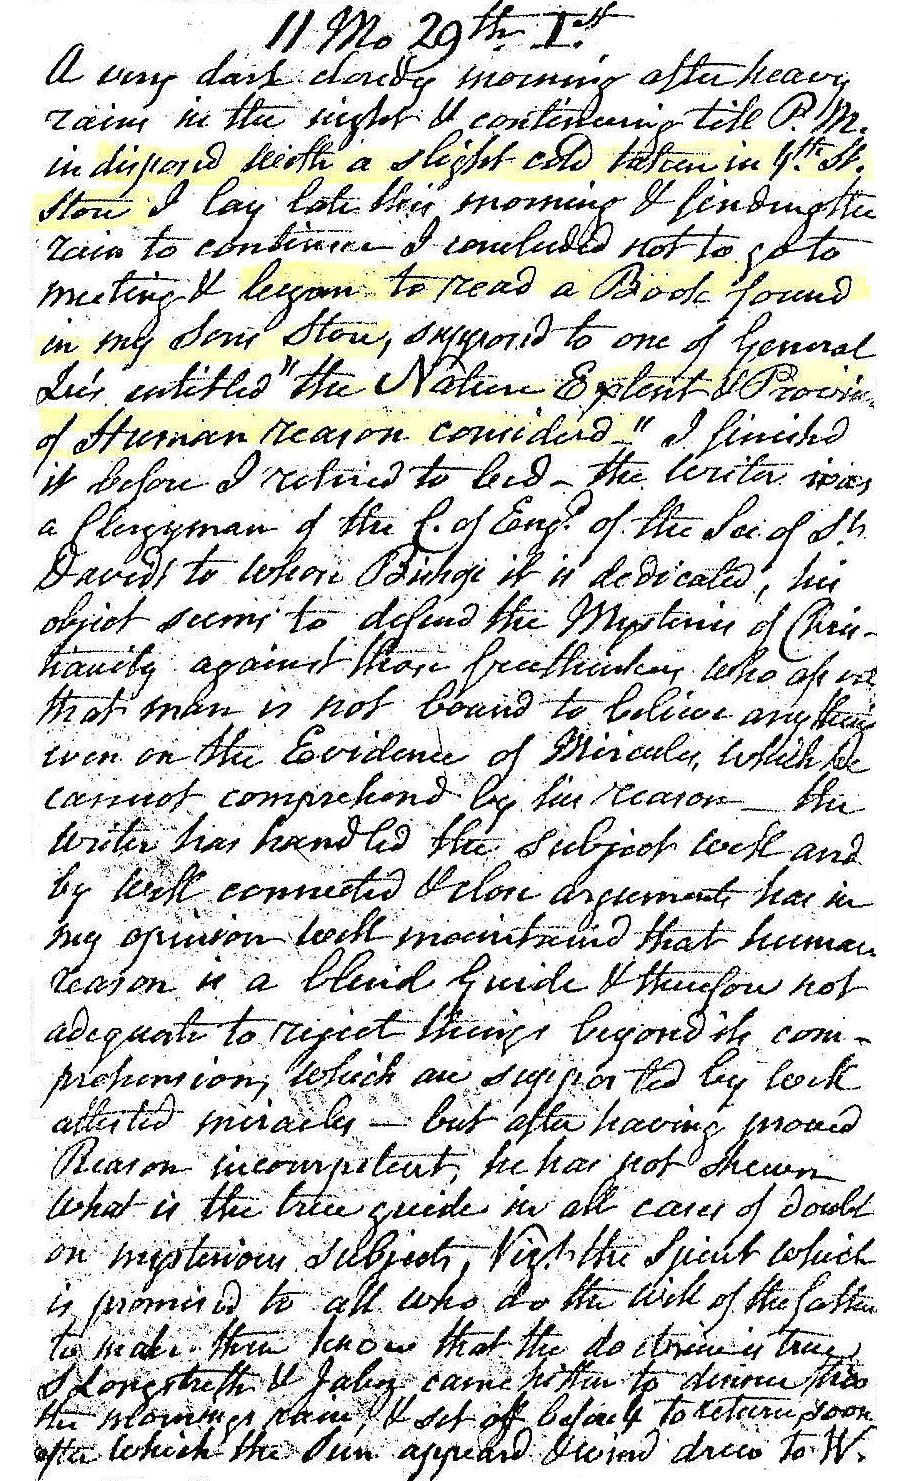 11 Mo 29th I.st
A very dark cloudy morning after heavy
rains in the night & continuing till P. M.
indisposed with a slight cold taken in 4th St.
Store I lay late this morning & finding the
rain to continue I concluded not to go to
meeting & began to read a Book found
in my Sons Store, supposd to one of General
Lee's entitled "the Nature Extent & Provin-
of Human reason considerd-" I finished
it before I retired to bed - the writer was
a Clergyman of the C. of Engd. of the See of St.
Davids to whose Bishop it is dedicated, his
object seems to defend the Mysteries of Chris-
tianity against those freethinkers who assert
that man is not bound to believe any thing
even on the Evidence of Miracles, which he
cannot comprehend by his reason - the
writer has handled the subject well and
by well connected & close arguments has in
my opinion well maintaind that human
reason is a blind Guide & therefore not
adequate to reject things beyond its com-
prehension, which are supported by well
attested miracles - but after having proved
Reason incompetent, he has not shewn
what is the true guide in all cases of doubt
on mysterious subjects, Vizt. the Spirit which
is promised to all who do the will of the father
to make them know that the doctrine is true
S Longstreth & Jabez came hither to dinner thro
the mornings rain, & set off before 4 to return soon
after which the Sun appeard & wind drew to W.